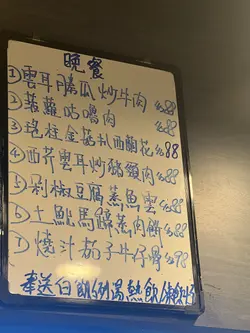 晚餐
①雲耳勝瓜炒牛肉 $88
②菠蘿咕嚕肉 $88
③瑤柱金菇扒西蘭花 $88
④西芹雲耳炒豬頸肉 $88
⑤剁椒豆腐蒸魚雲 $88
⑥土魷馬蹄蒸肉餅 $88
⑦燒汁茄子牛仔骨 $98
奉送白飯例湯熱飲